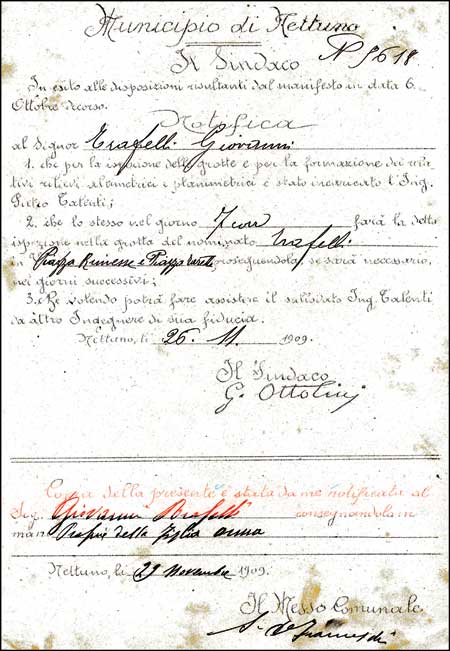 Municipio di Nettuno
Il Sindaco
N 9618
In esito alle disposizioni risultanti dal manifesto in data 6
Ottobre decorso.
Notifica
al Signor Trafelli Giovanni
1. che per la ispezione delle grotte e per la formazione dei
rilievi altimetrici e planimetrici è stato incaricato l'Ing.
Pietro Talenti;
2. che lo stesso nel giorno farà la detta
ispezione nella grotta del nominato Trafelli
in Piazza e Piazza proseguendola, se sarà necessario,
nei giorni successivi;
3. che volendo potrà fare assistere il sullodato Ing. Talenti
da altro Ingegnere di sua fiducia.
Nettuno, li 26. 11. 1909.
Il Sindaco
G. Ottolini
Copia della presente è stata da me notificata al
Sig. Giovanni Trafelli consegnandola in
mani proprie della figlia Anna
Nettuno, li 29 Novembre 1909.
Il Messo Comunale